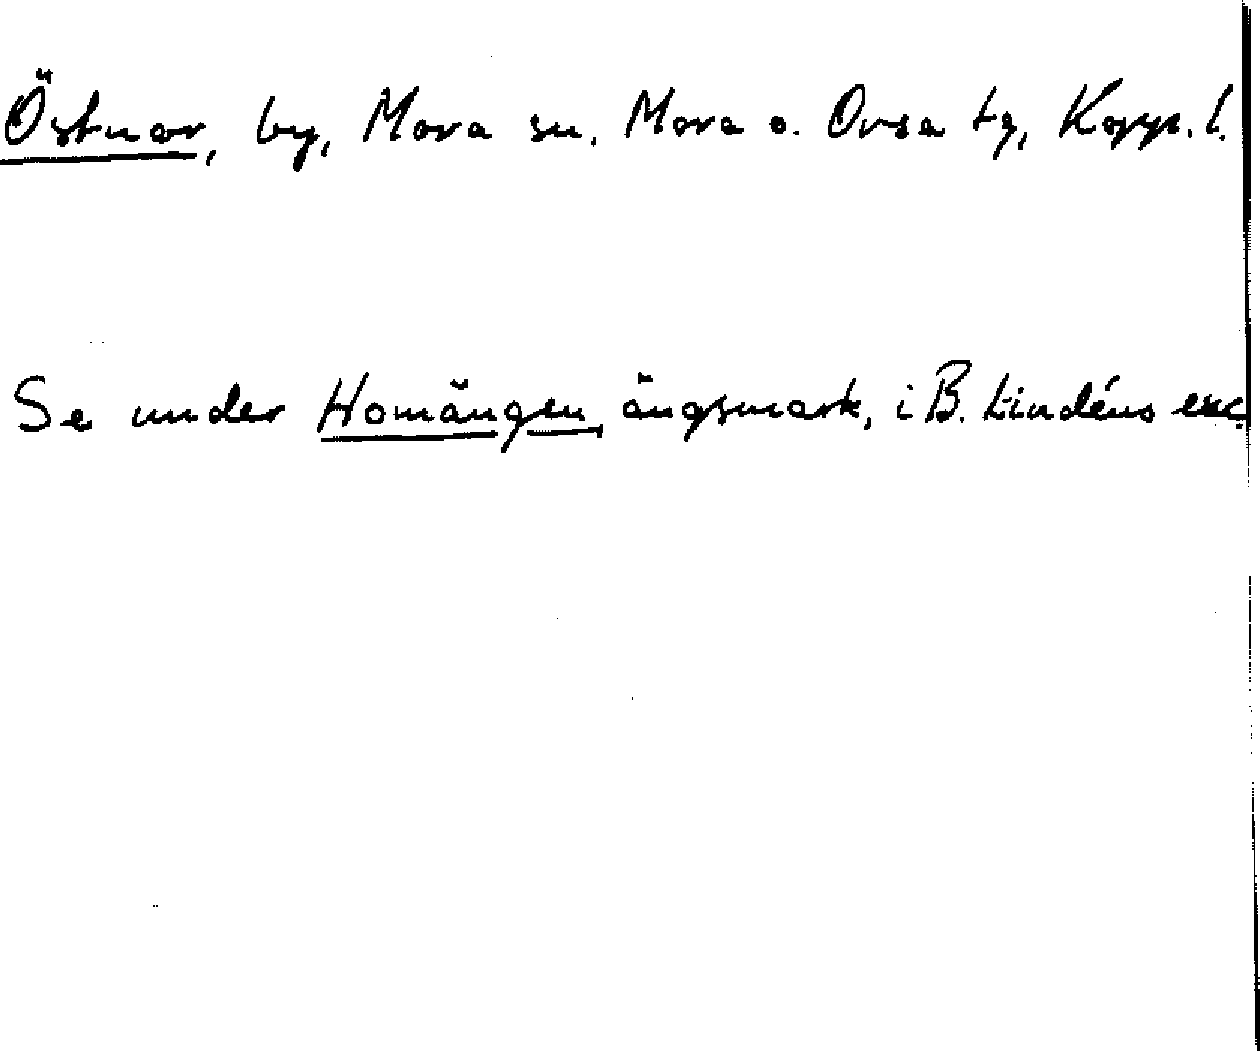 Östnor, by, Mora sn. Mora o. Orsa tg, Kopp. l.
Se under Homängen, ängsmark, i B. Lindéns exc.